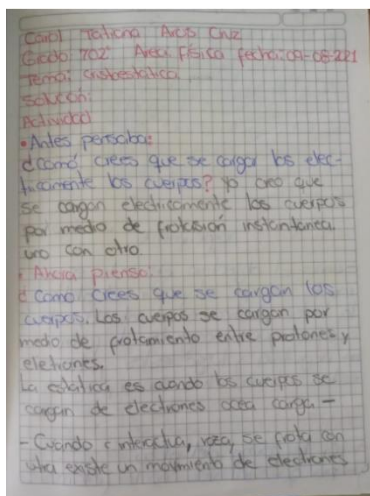 Carol Tatiana Arcos Cruz
Grado: 702 Area física fecha: 09-08-221
Tema:
Solución:
Actividad
• Antes pensaba:
¿Como crees que se cargan los elec-
tricamente los cuerpos? Yo creo que
se cargan electricamente los cuerpos
por medio de instantanea
uno con otro
• Ahora pienso:
¿Como crees que se cargan los
cuerpos. Los cuerpos se cargan por
medio de frotamiento entre protones y
eletrones.
La estatica es cuando los cuerpos se
cargan de electrones carga -
- Cuando interactua, roza, se frota con
existe un movimiento de electrones